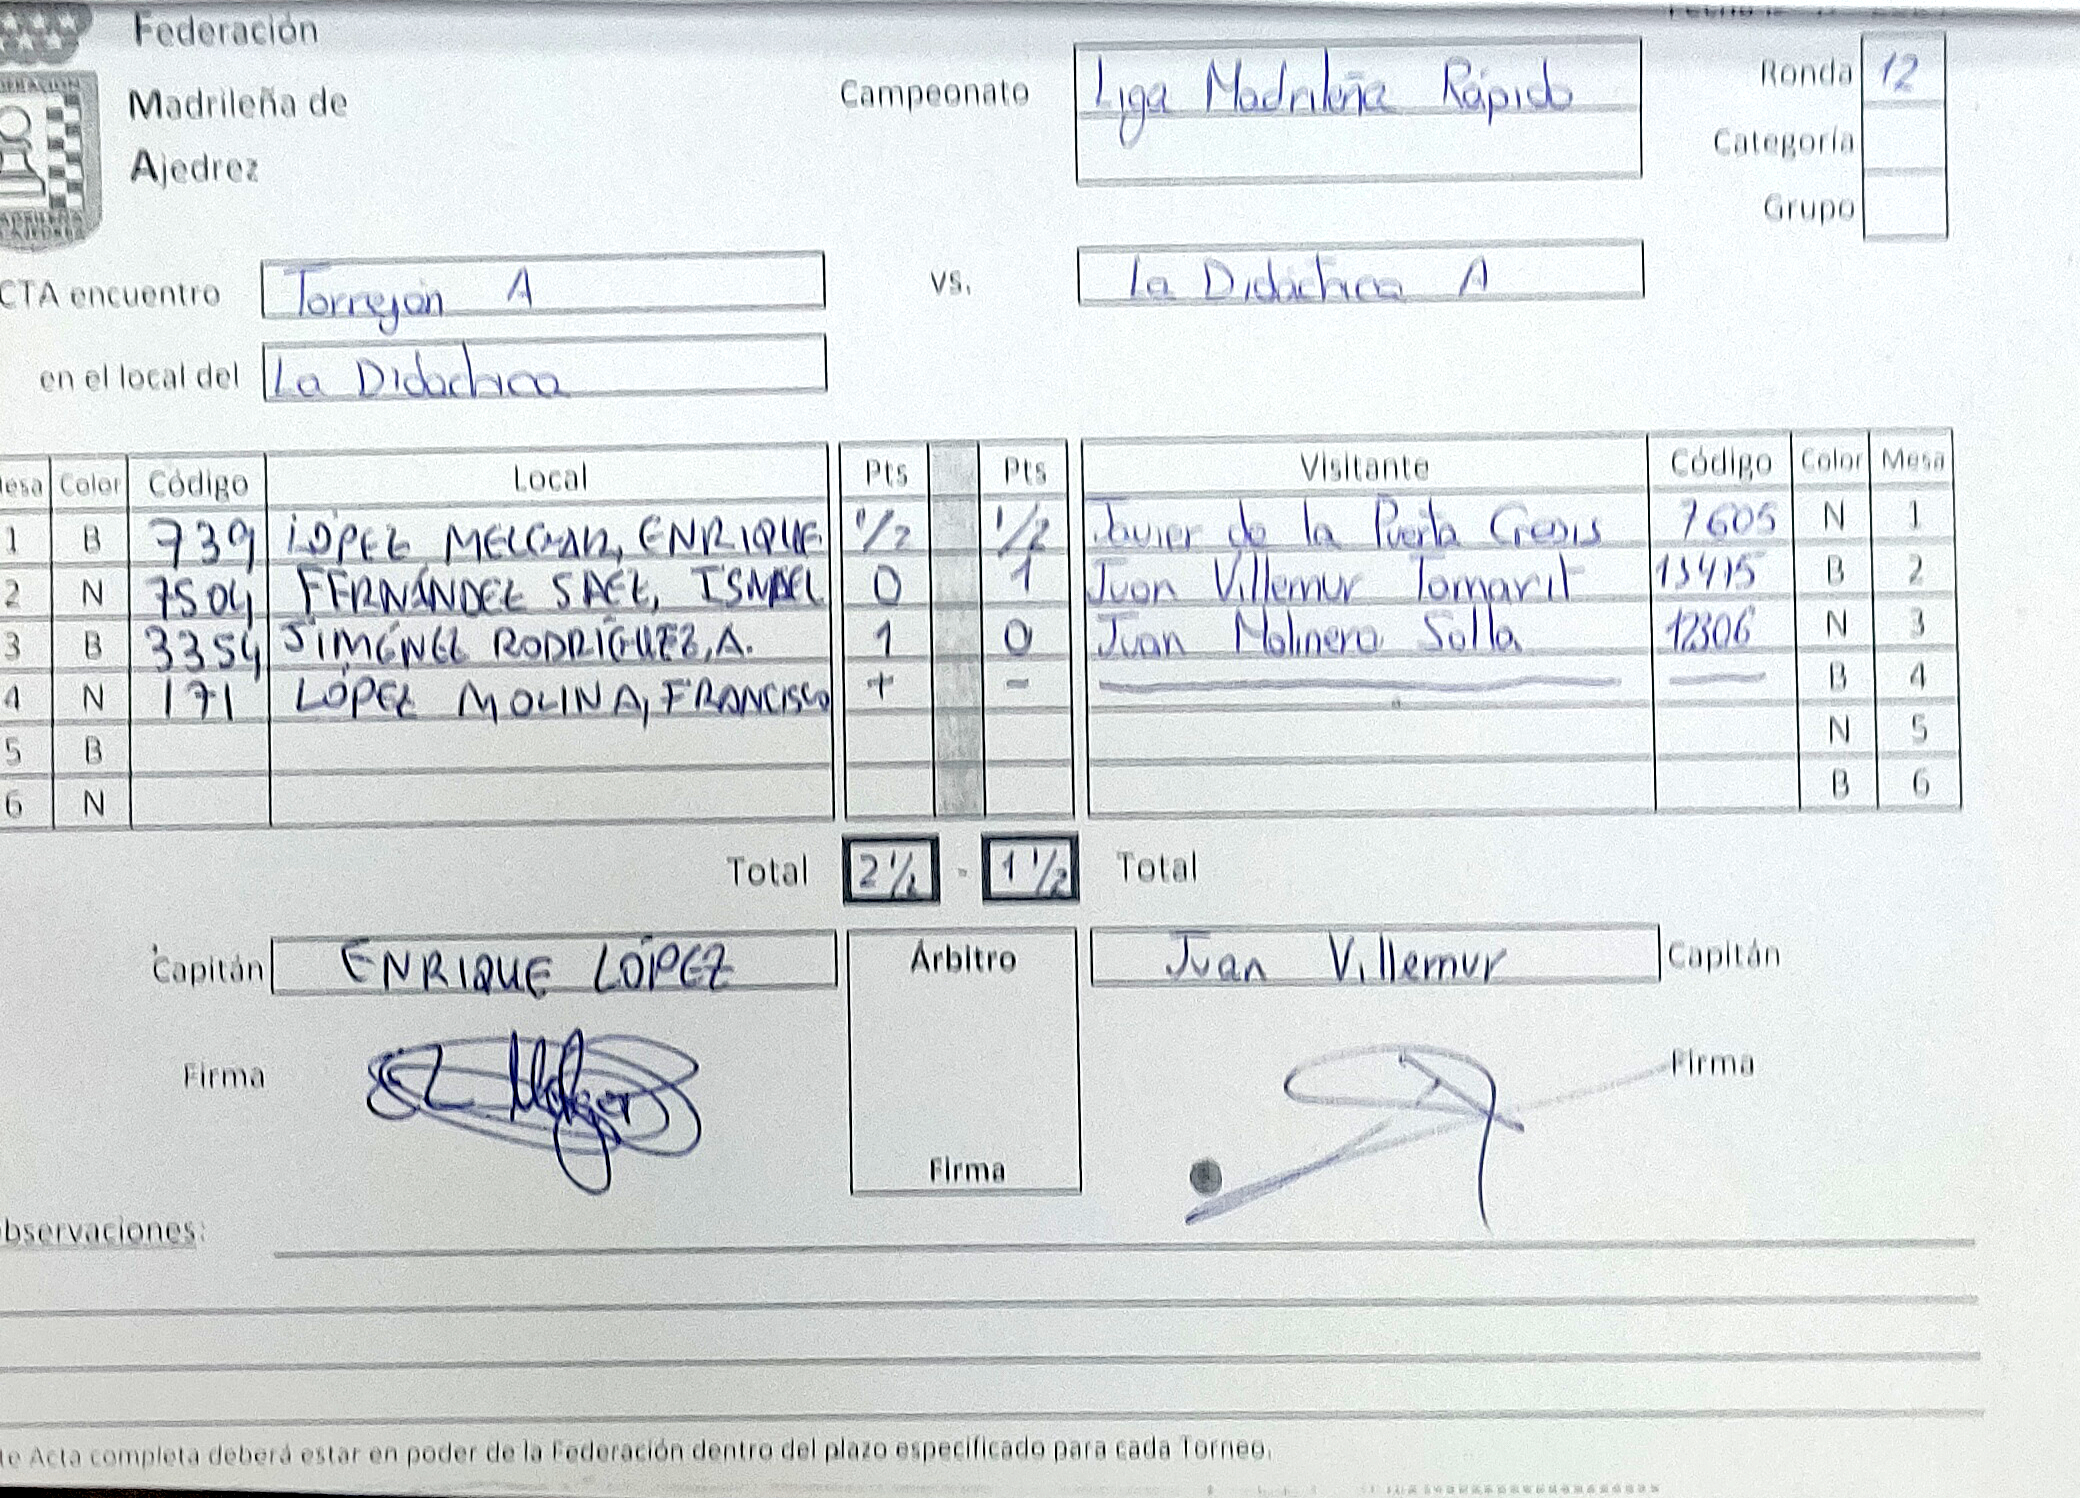 Federación
Madrileña de
Ajedrez
Campeonato Liga Madrileña Rápido
Ronda 12
Categoría
Grupo
CTA encuentro Torrejón A vs. La Didáctica A
en el local del La Didáctica
esa Color Código Local Pts Pts Visitante Código Color Mesa
1 B 739 LÓPEZ MELGAR, ENRIQUE 1/2 1/2 Javier de la Puerta 7605 N 1
2 N 7504 FERNÁNDEZ SAEZ, ISMAEL 0 1 Juan Villemur Tomarit 13415 B 2
3 B 3354 JIMÉNEZ RODRÍGUEZ, A. 1 0 Juan Molinero Solla 12306 N 3
4 N 171 LÓPEZ MOLINA, FRANCISCO + - B 4
5 B N 5
6 N B 6
Total 2 1/2 - 1 1/2 Total
Capitán ENRIQUE LÓPEZ Árbitro Juan Villemur Capitán
Firma Firma
Firma
bservaciones:
te Acta completa deberá estar en poder de la Federación dentro del plazo especificado para cada Torneo.